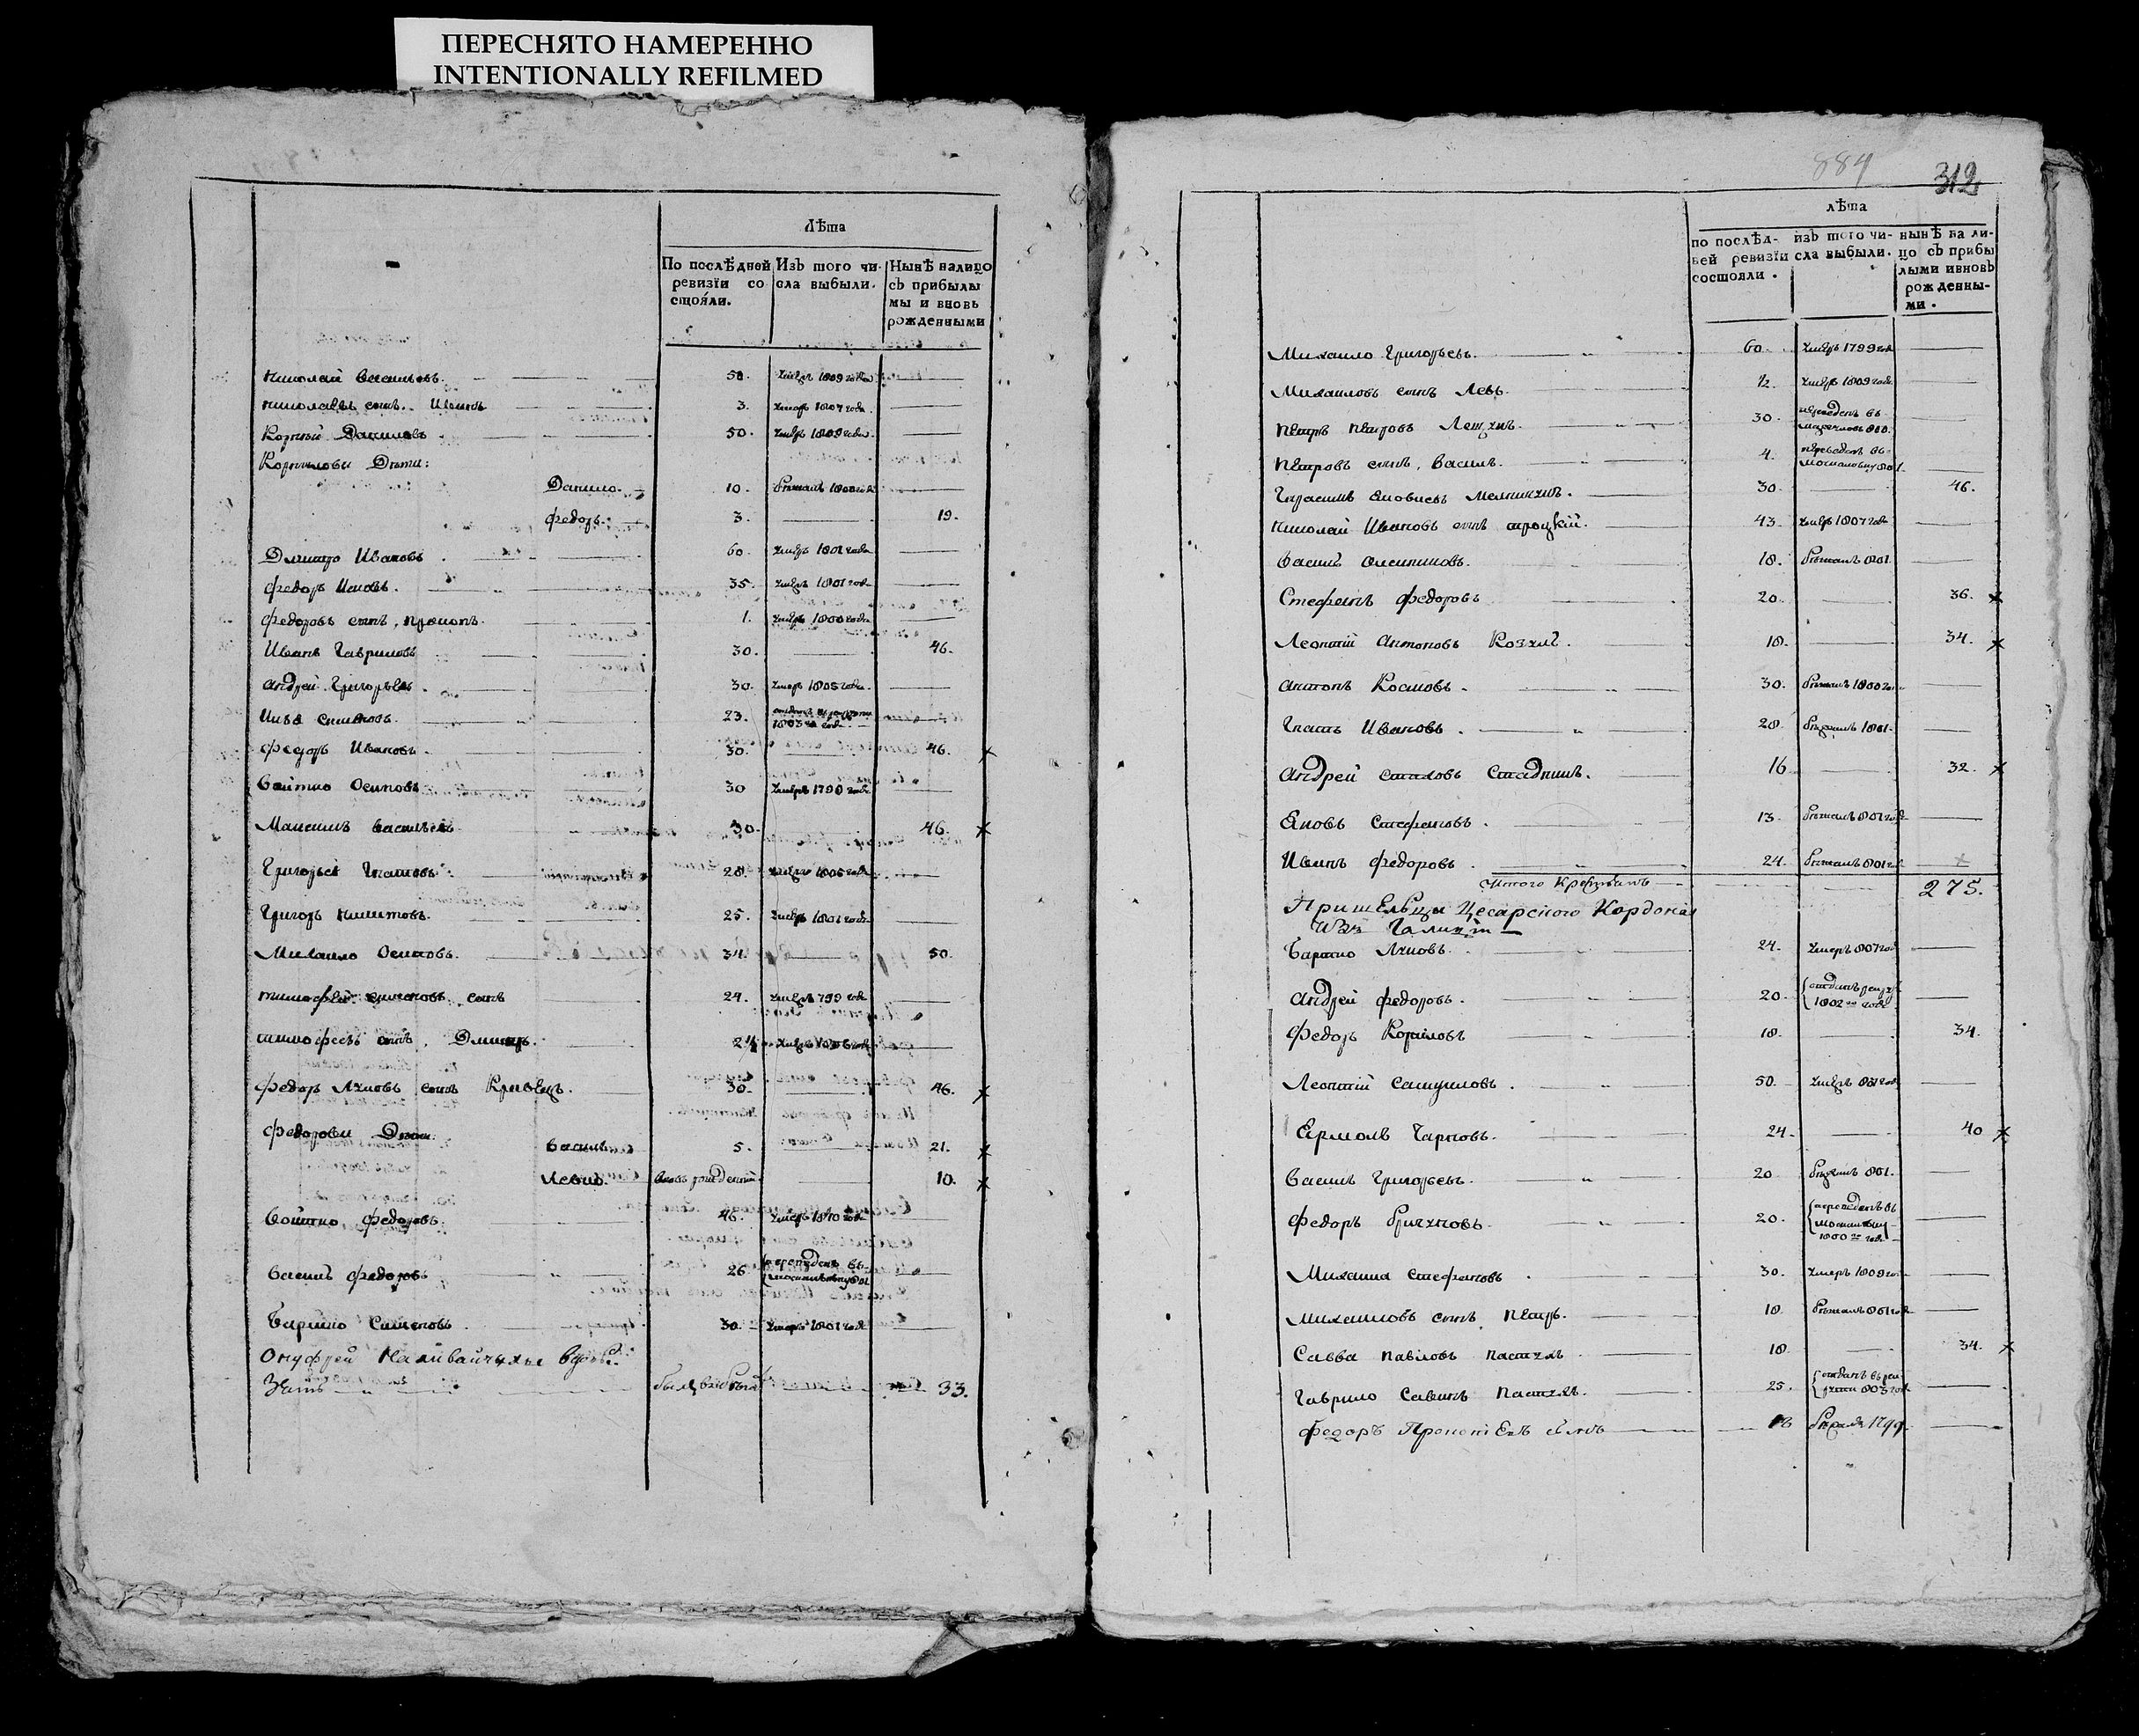 ПЕРЕСНЯТО НАМЕРЕННО
INTENTIONALLY REFILMED
Лѣта
По послѣдней ревизїи со стоя́ли.
Изъ того чи- сла выбыли.
Нынѣ налицо съ прибылы мы и вновь рожденными
Николай Васильевъ. 50. умеръ 1809 года
Николаевъ сынъ. Иванъ 3. умеръ 1807 года.
Корнѣй Даниловъ 50. умеръ 1809 года.
Корниловы Дѣти:
Данило. 10. бѣжалъ 1800 года
Федоръ. 3. 19.
Дмитро Ивановъ 60. умеръ 1801 года
Федоръ 35. умеръ 1801 года
Федоровъ сынъ, Прокопъ. 1. умеръ 1800 года
Иванъ Гавриловъ 30. 46.
Андрей Григорьевъ. 30. умеръ 1805 года.
23. отданъ 1803 года
Федоръ Ивановъ. 30. 46. x
Войтко Осиповъ 30 умеръ 1798 года
Максимъ Васильевъ 30. 46. x
Григорьей Игнатовъ. 28. умеръ 1806 года
Григоръ Никитовъ. 25. умеръ 1801 года
Михайло Осиповъ. 34. 50.
Тимофей Симоновъ сынъ 24. умеръ 799 года
Тимофеевъ сынъ, Дмитръ. 24. умеръ 1806 года
Федоръ Яцковъ сынъ Кравецъ. 30. 46. x
Федоровы Дѣти:
Василь 5. 21. x
Левко. вновь рожденный 10. x
Войтко Федоровъ. 46. умеръ 1810 года
Василь Федоровъ 26 переведенъ въ
Бартко Симоновъ 30. умеръ 1801 года
Онуфрей вдовы
Зять 33.
884
312
лѣта
по послѣд- ней ревизїи состояли.
изъ того чи- сла выбыли.
нынѣ на ли- цо съ прибы лыми ивновь рожденны- ми.
Михайло Григорьевъ. 60. умеръ 1799 года
Михайловъ сынъ Левъ. 1/2 умеръ 1809 года.
Петръ Петровъ 30. переведенъ въ
Петровъ сынъ, Василь. 4. переведенъ въ
Герасимъ Яковлевъ Мельникъ. 30 46.
Николай Ивановъ сынъ Троцкій. 43. умеръ 1807 года
Василь Олейниковъ. 18. бѣжалъ 801.
Стефанъ Федоровъ 20. 36. x
Леонтій Антоновъ Козакъ. 18. 34. x
Антонъ Космовъ. 30. бѣжалъ 1800 года
Игнатъ Ивановъ. 28. бѣжалъ 1801.
Андрей Стадникъ. 16 32. x
Яковъ Стефановъ. 13. бѣжалъ 801 года
Иванъ Федоровъ. 24. бѣжалъ 801 года x
Итого Крестьянъ 275.
Пришельцы Цесарского Кордона
Изъ Галиціи
Бартко Яцковъ. 24. умеръ 807 года
Андрей Федоровъ. 20. отданъ 1802 года
Федоръ Корниловъ 18. 34.
Леонтій Самуиловъ. 50. умеръ 801 года
Ермолъ Карповъ. 24. 40 x
Василь Григорьевъ. 20 бѣжалъ 801.
Федоръ 20. переведенъ въ 1800 года
Михайла Стефановъ. 30. умеръ 1809 года
Михайловъ сынъ Петръ. 10 бѣжалъ 801 года
Савва Павловъ Пастухъ. 18. 34. x
Гаврило Савинъ Пастухъ. 25. отданъ въ рек- руты 803 года
Федоръ сынъ 18 бѣжалъ 1799.